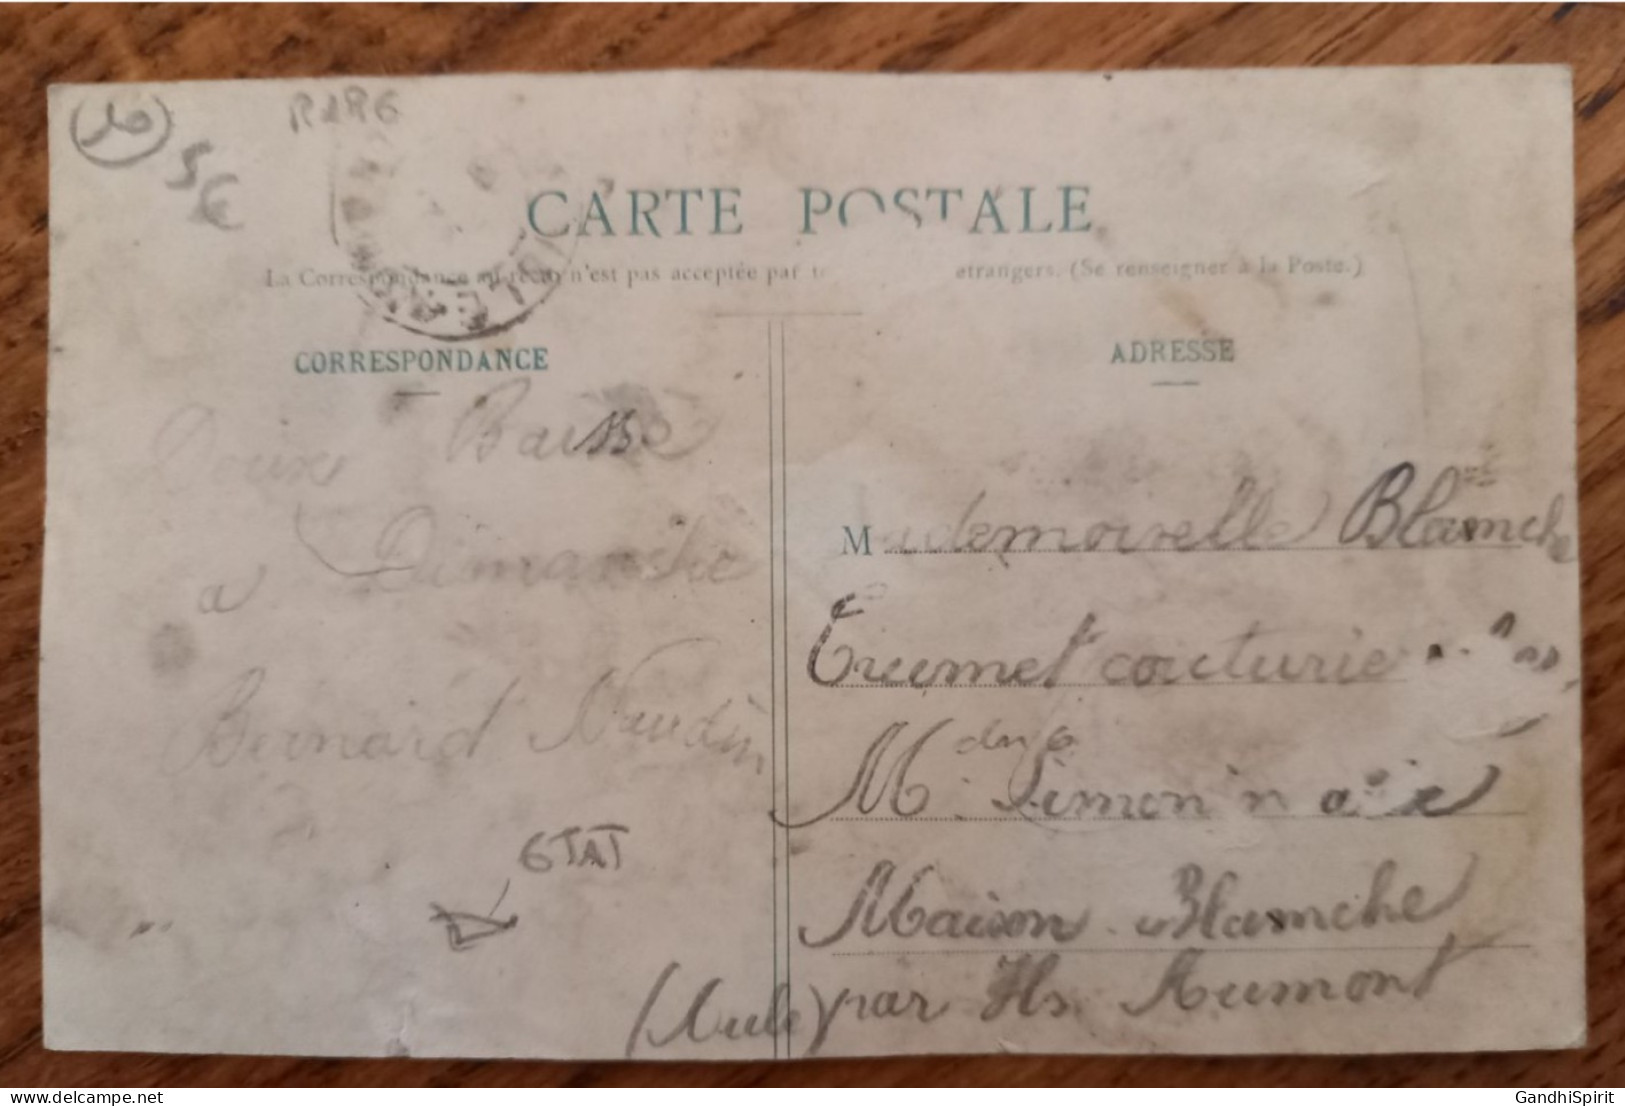 10
5€
R1R6
CARTE POSTALE
La Correspondance au recto n'est pas acceptée par étrangers. (Se renseigner à la Poste.)
CORRESPONDANCE
Doux Baisé
a Dimanche
Bernard Naudin
ETAT
ADRESSE
Mademoiselle Blanche
Trumet couturie
M Simonin
Maison Blanche
par Is Aumont
(Aube)
delcampe.net
GandhiSpirit